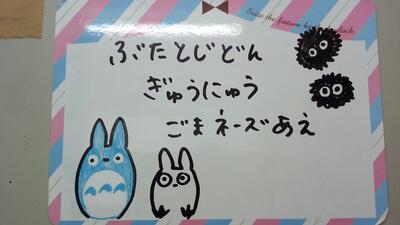 Seize the fortune by the forelock.
ぶたとじどん
ぎゅうにゅう
ごまネーズあえ